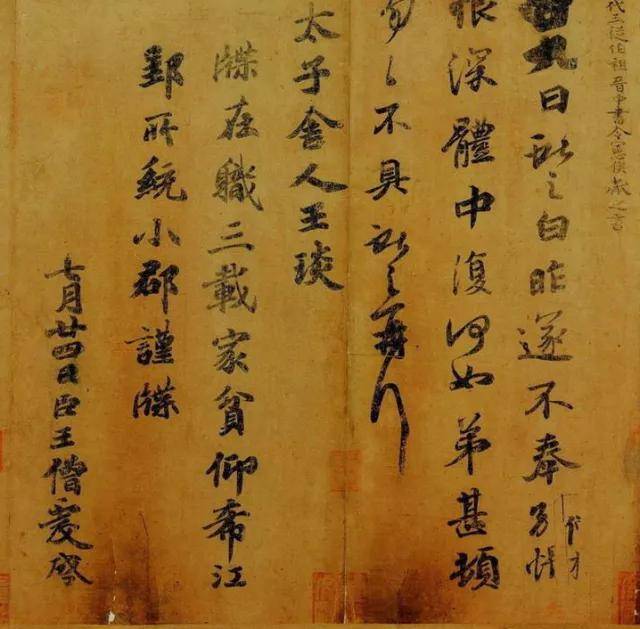 代三從伯祖晉中書令憲侯獻之書
廿九日獻之白昨遂不奉別悵
恨深體中復何如弟甚頓
匆匆不具獻之再拜
太子舍人王琰
牒在職三載家貧仰希江
郢所統小郡謹牒
七月廿四日臣王僧虔啓